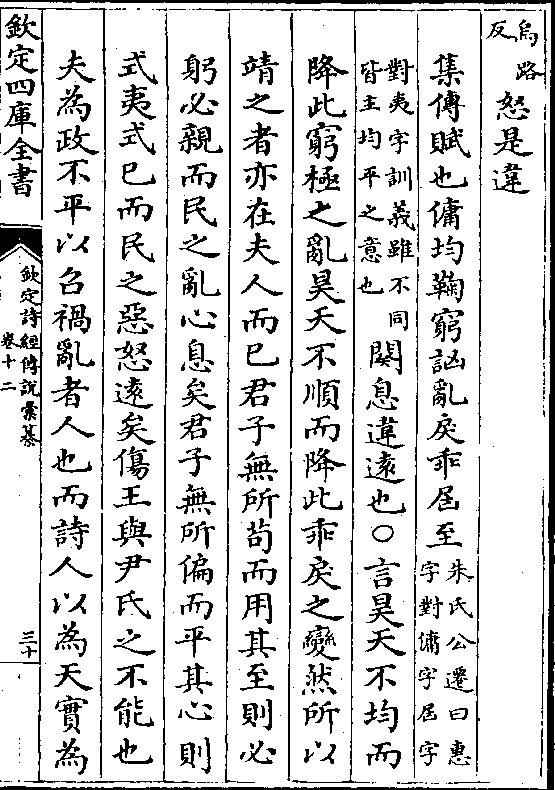 烏路反怒是違
集傳賦也傭均鞠窮訩亂戾乖屆至朱氏公遷曰惠字對傭字屆字
對夷字訓義雖不同皆主均平之意也闋息違遠也○言昊天不均而
降此窮極之亂昊天不順而降此乖戾之變然所以
靖之者亦在夫人而已君子無所苟而用其至則必
躬必親而民之亂心息矣君子無所偏而平其心則
式夷式已而民之惡怒遠矣傷王與尹氏之不能也
夫為政不平以召禍亂者人也而詩人以為天實為
欽定四庫全書
欽定詩經傳說彙纂
卷十二
三十